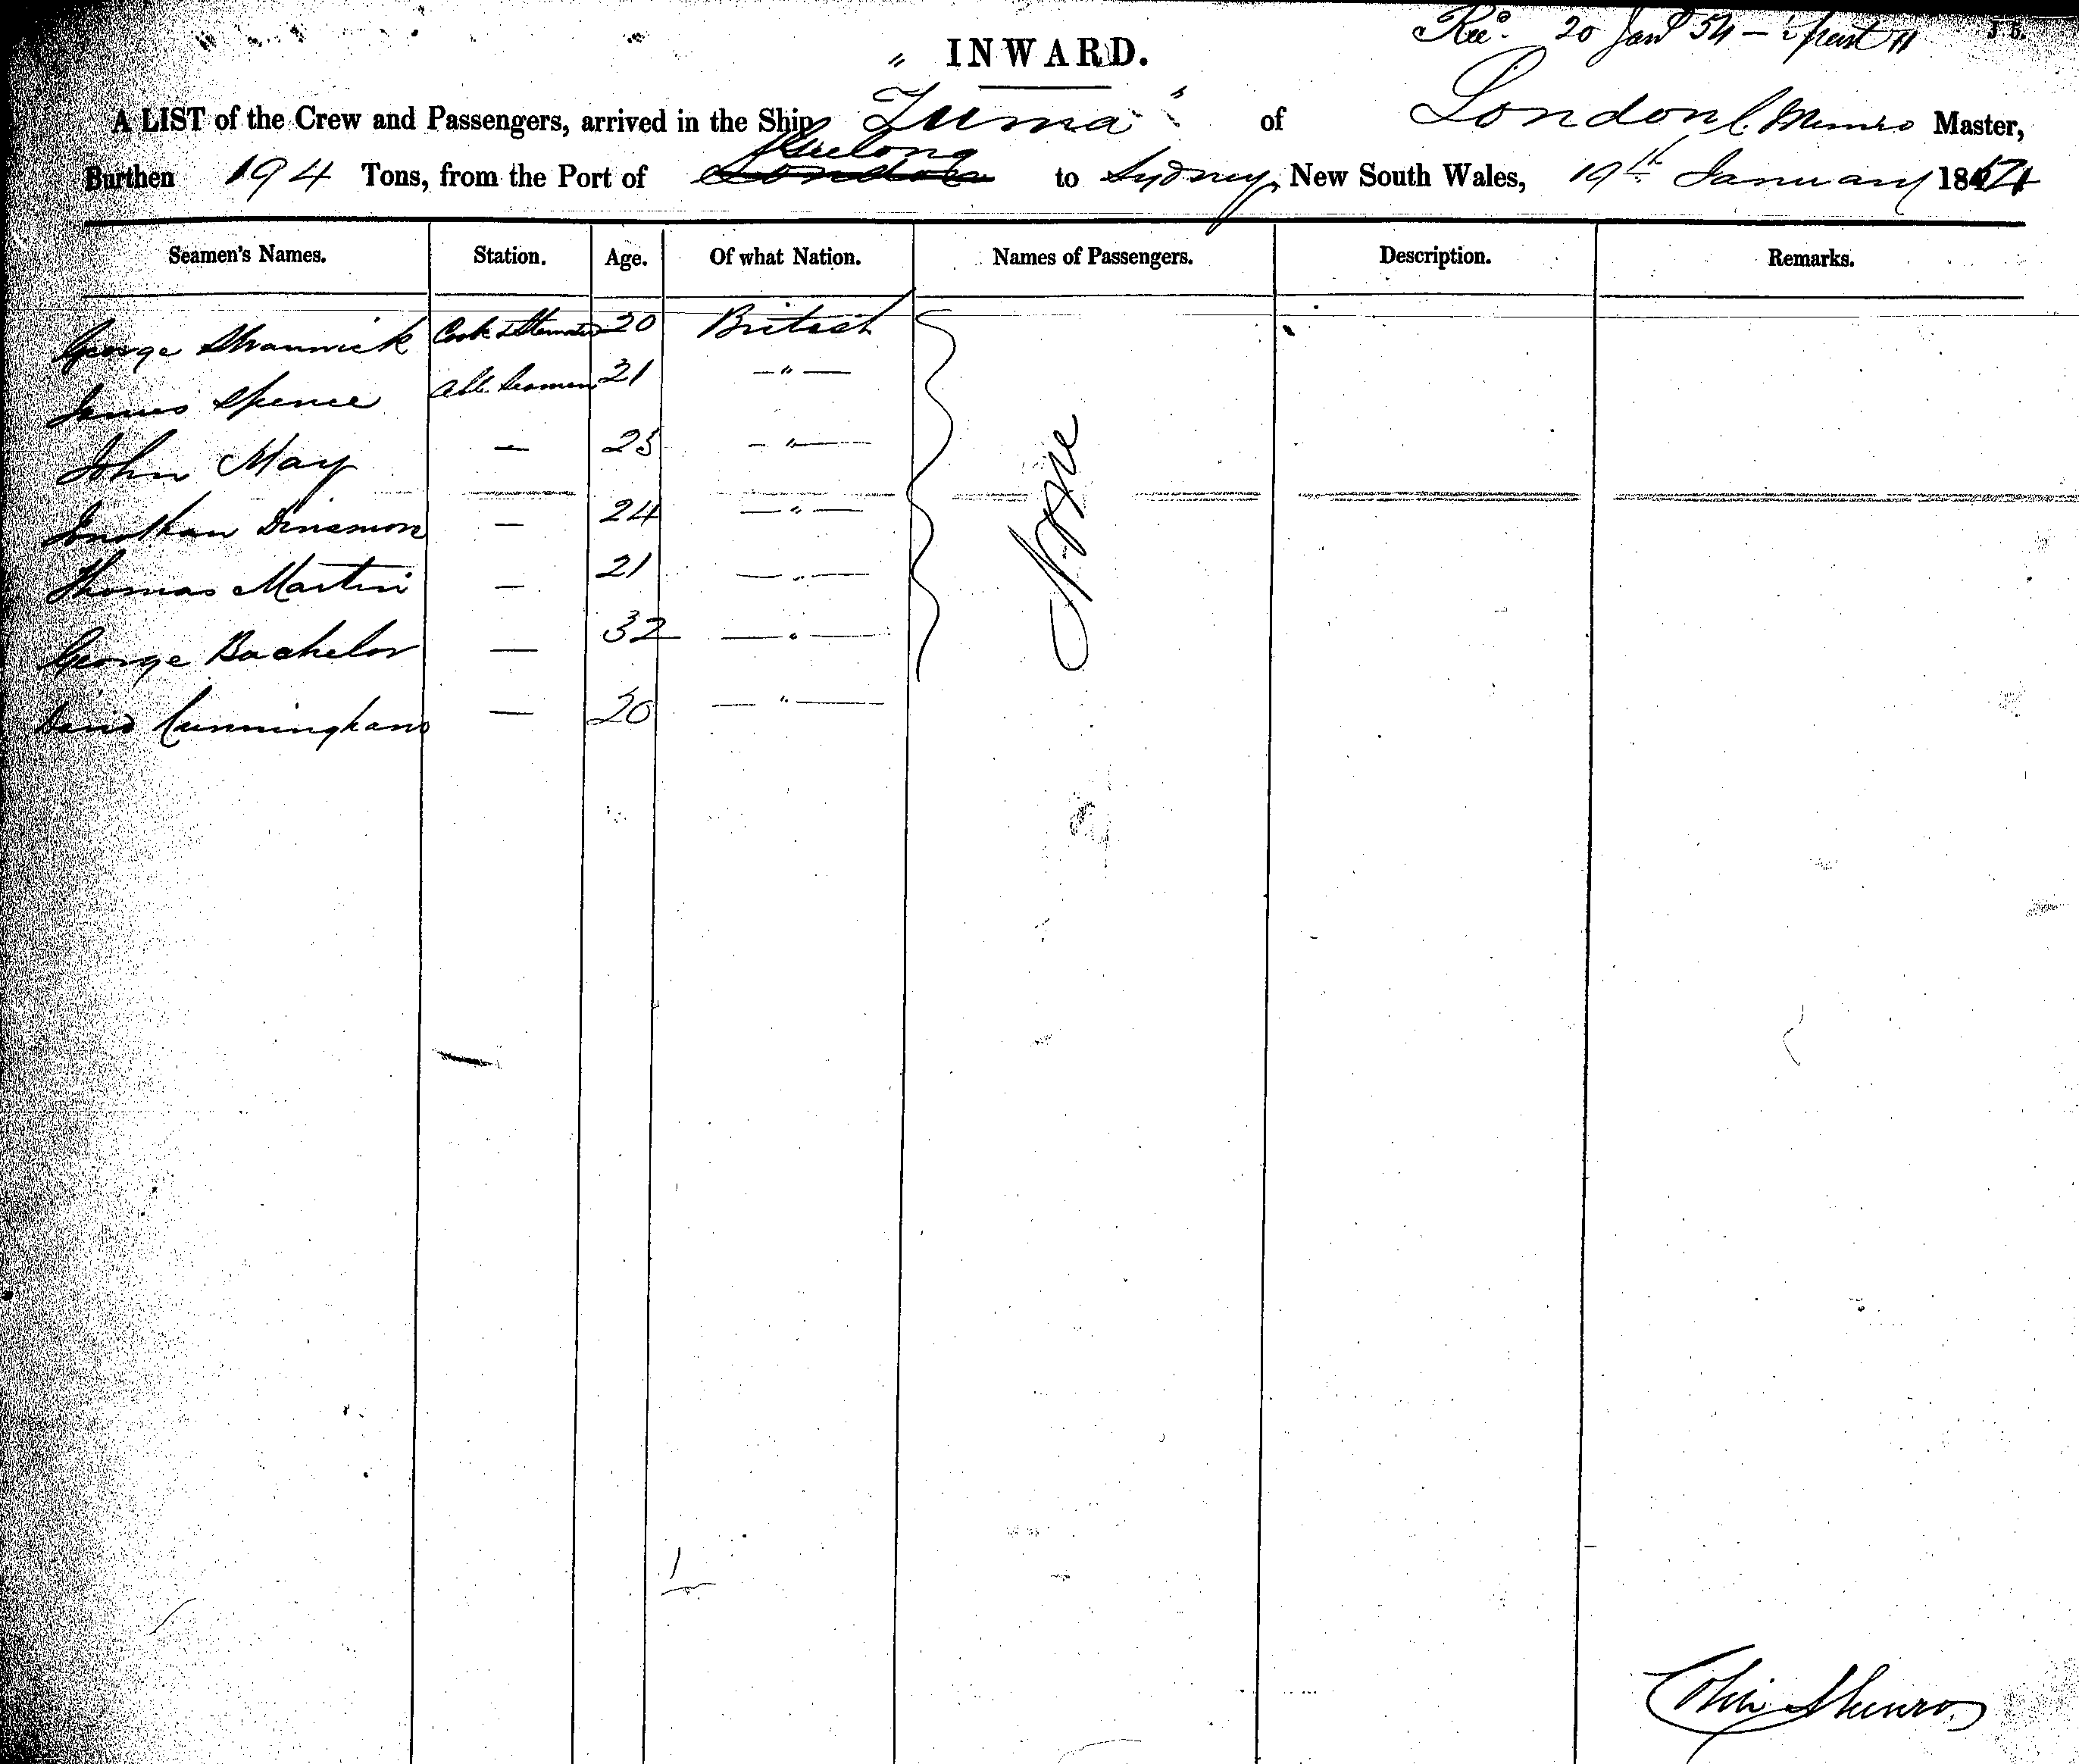 Recd. 20 Jany 54 — past 11
INWARD.
A LIST of the Crew and Passengers, arrived in the Ship "Zuma" of London C. Munro Master,
Geelong
Burthen 194 Tons, from the Port of London to Sydney, New South Wales, 19th January 1854
Seamen's Names. Station. Age. Of what Nation. Names of Passengers. Description. Remarks.
George Cook & Steward 20 British
James Spence able Seaman 21 — " —
John May — 25 — " —
Jonathan Dinsmore — 24 — " —
Thomas Martin — 21 — " —
George Bachelor — 32 — " —
David Cunningham — 20 — " —
None
Colin Munro